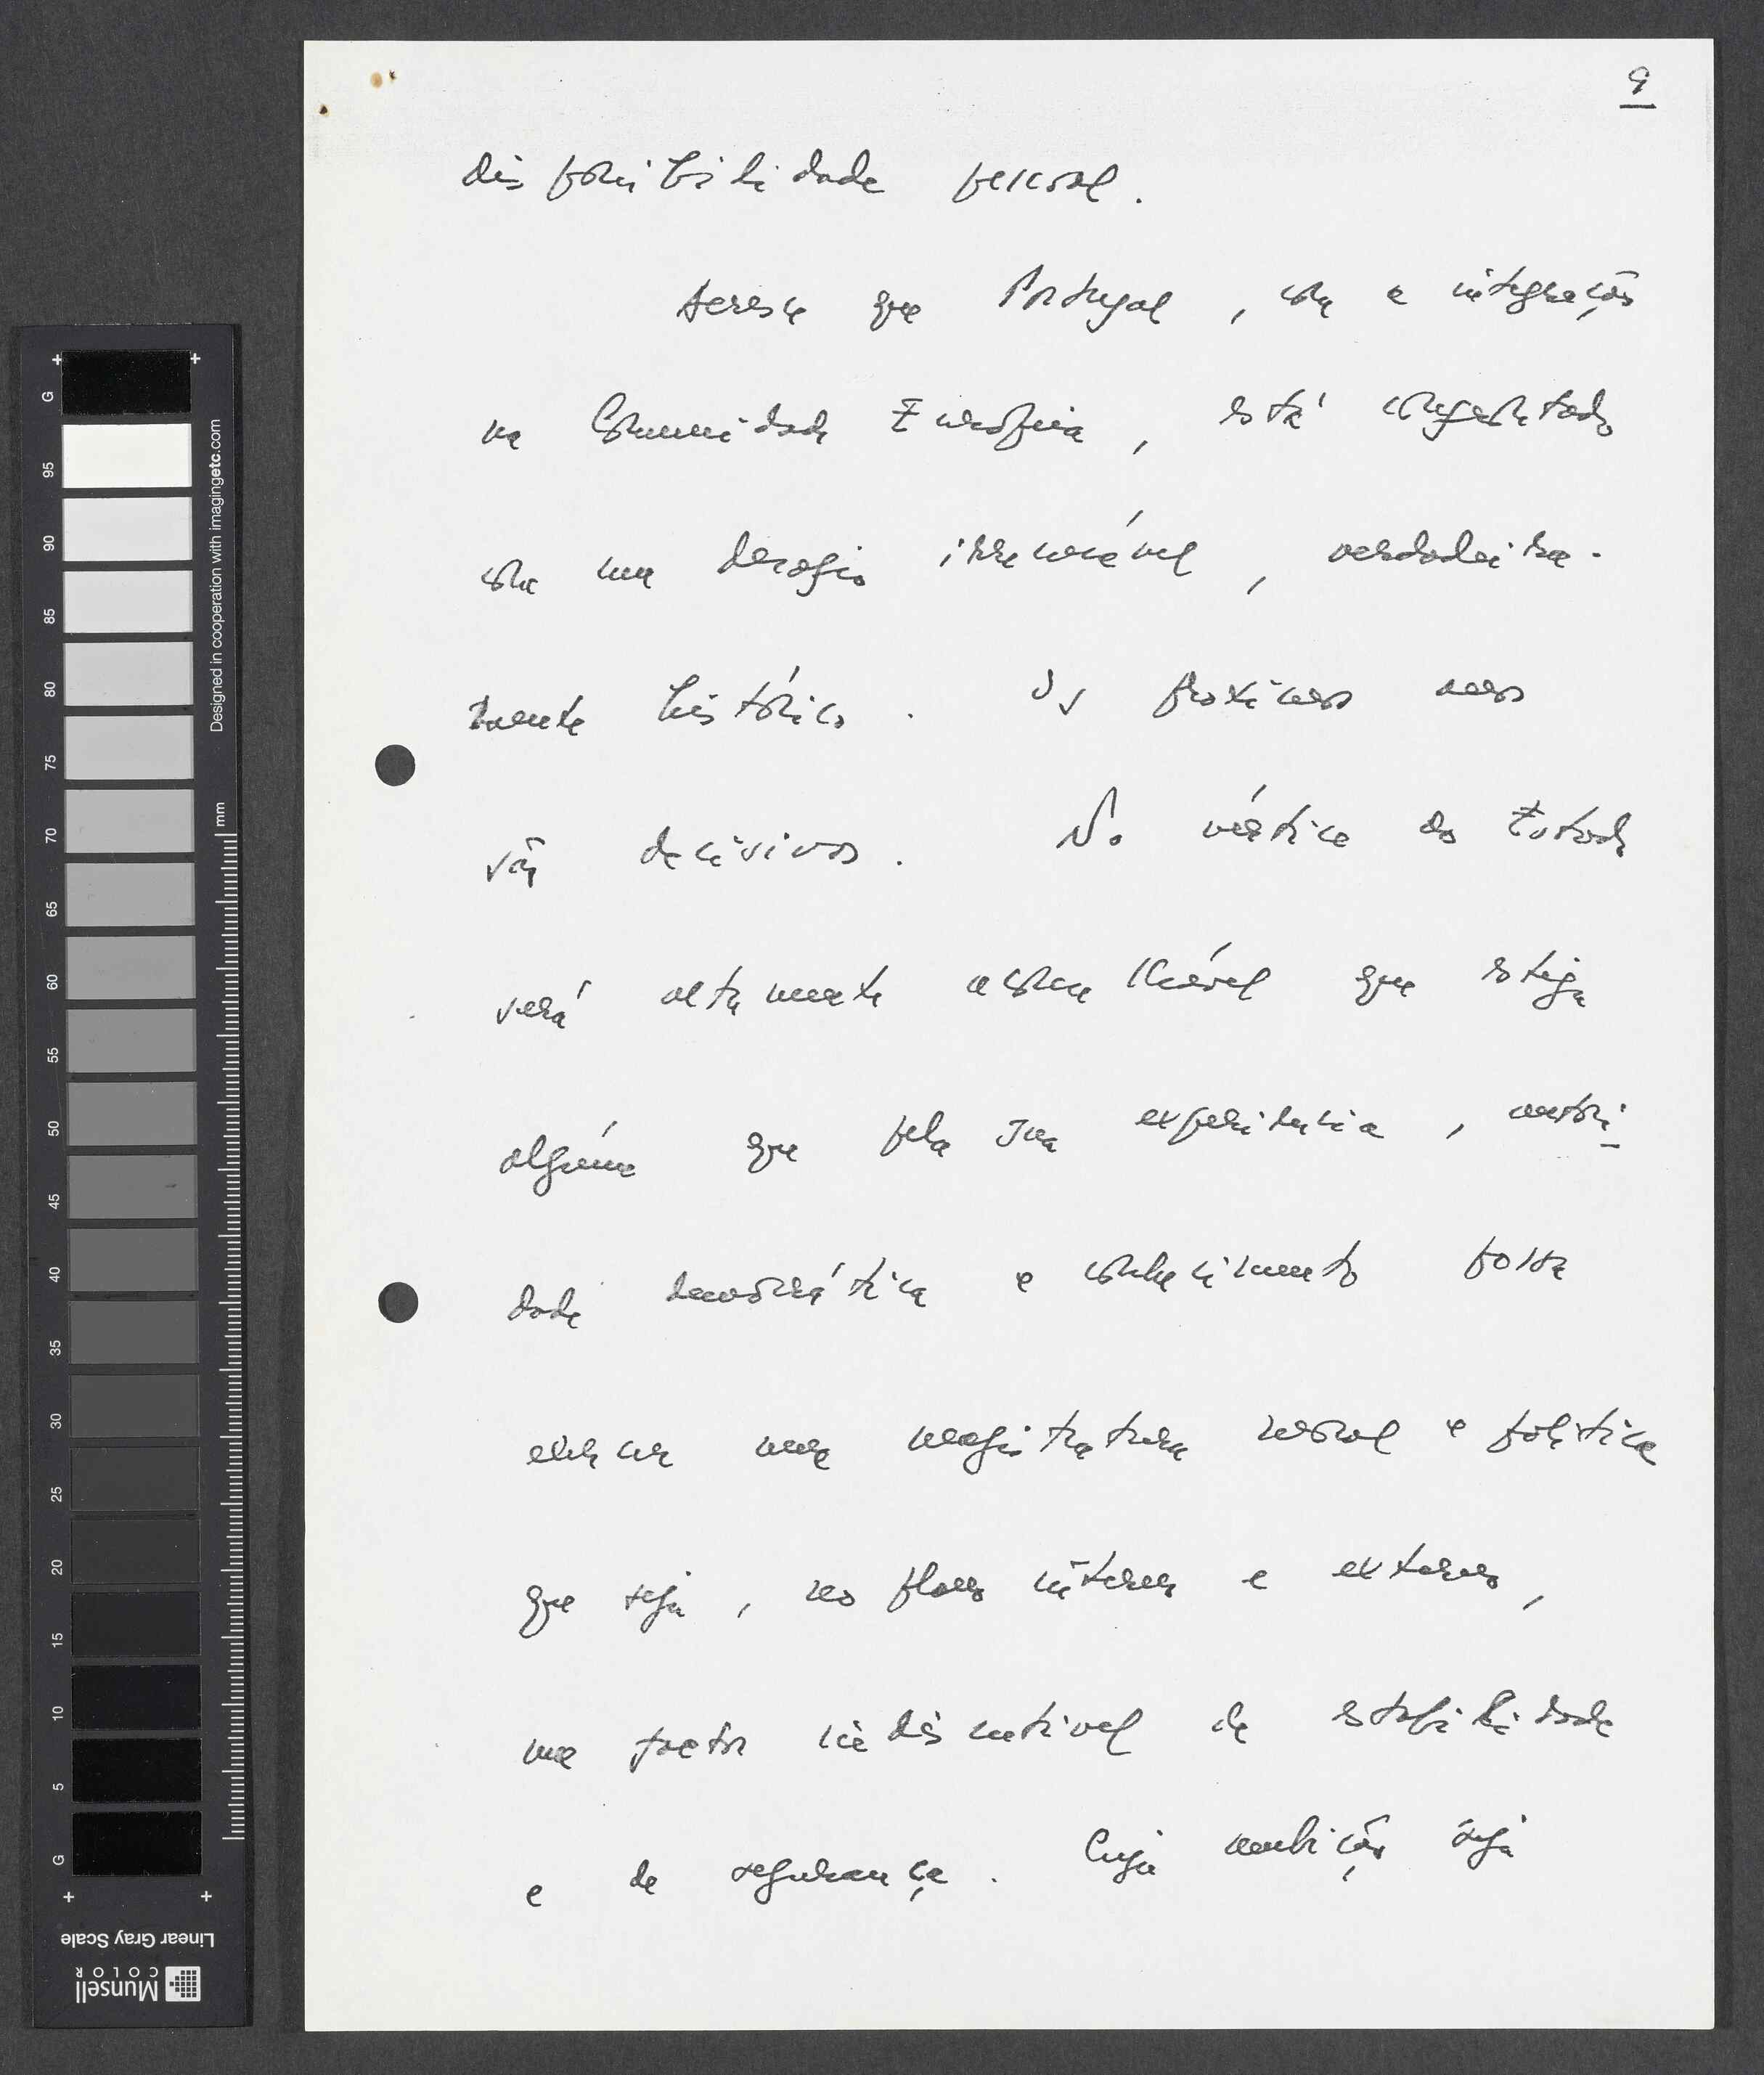 9
disponibilidade pessoal.
Acresce que Portugal, com a integração
na Comunidade Europeia, está confrontado
com um desafio irrecusável, verdadeira-
mente histórico. Os próximos anos
são decisivos. No vértice do Estado
será altamente aconselhável que esteja
alguém que pela sua experiência, autori-
dade democrática e conhecimento possa
exercer uma magistratura moral e política
que seja, no plano interno e externo,
um factor indiscutível de estabilidade
e de segurança. Cuja ambição seja
+ +
G
95
90
85
80
75
70
65
60
55
50
45
40
35
30
25
20
15
10
5
G
+ +
mm
Designed in cooperation with imagingetc.com
Linear Gray Scale
Munsell
COLOR